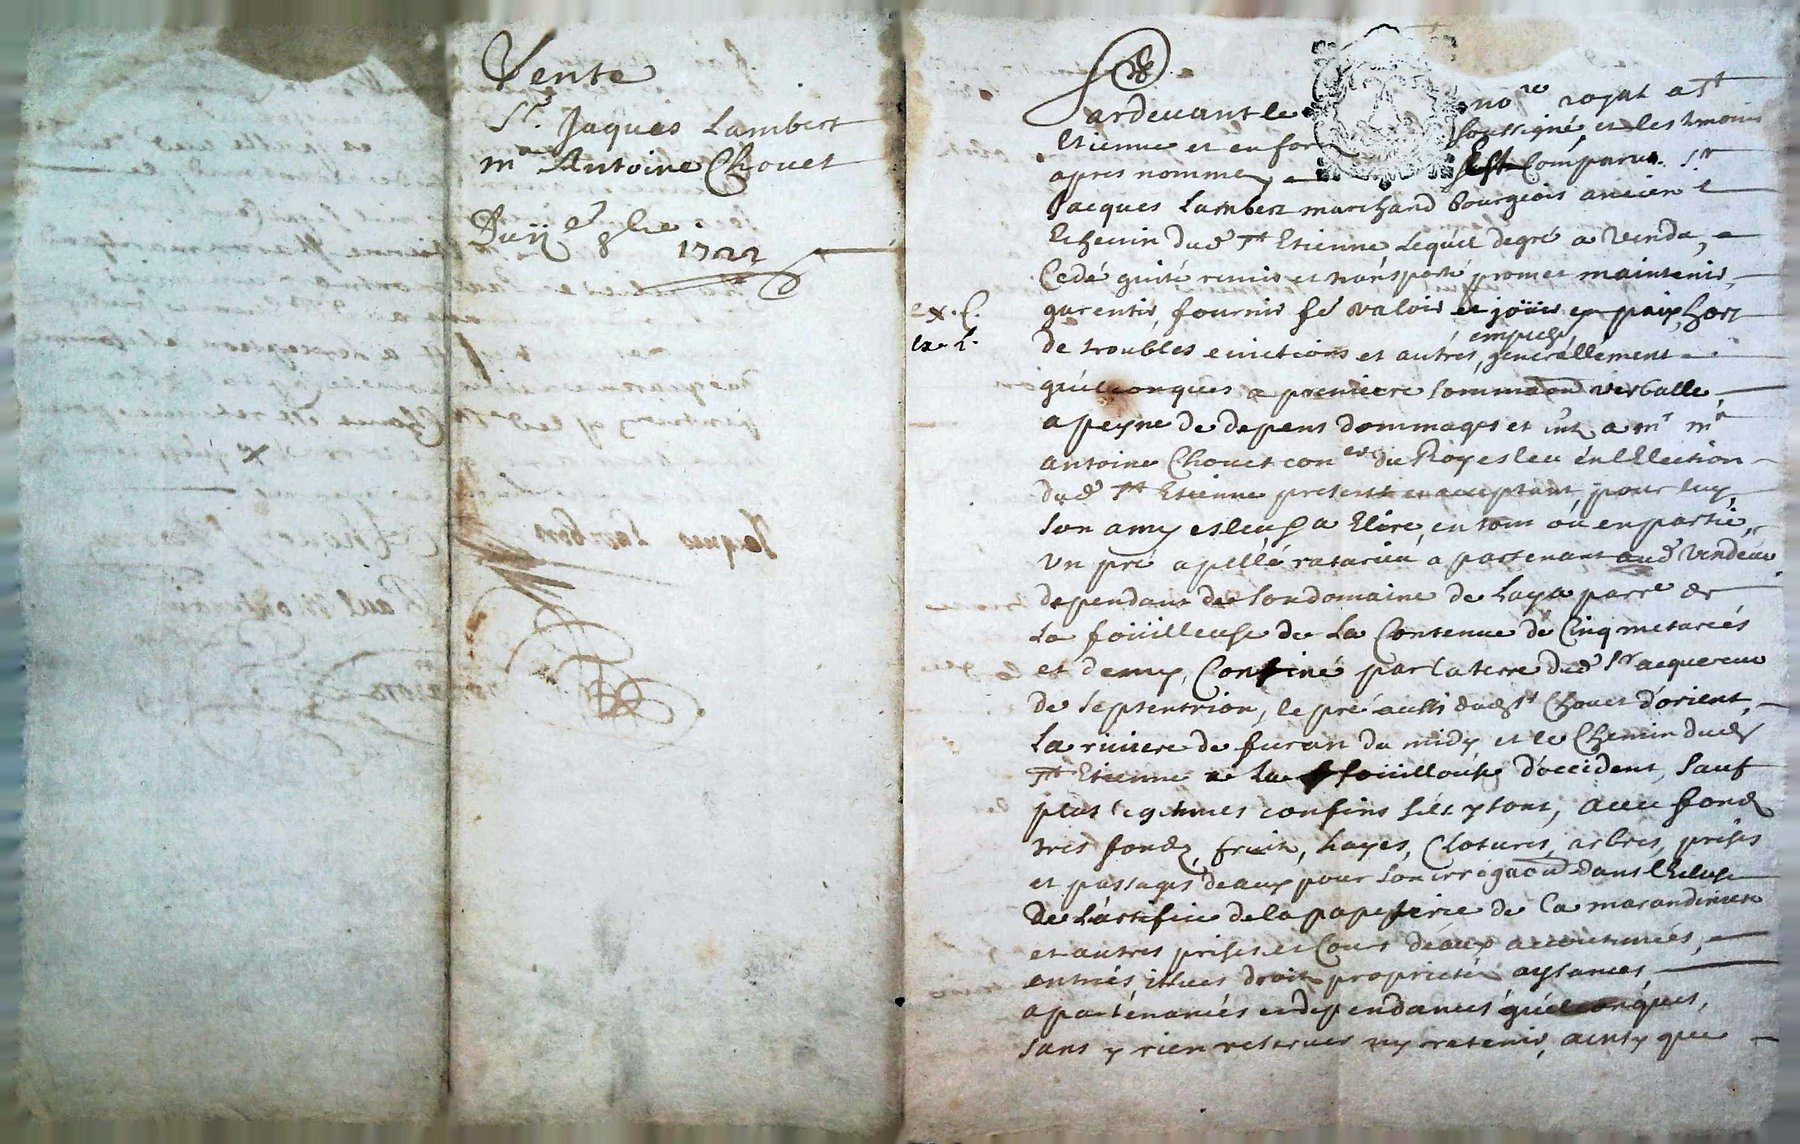 Vente
Sr. Jaques Lambert
mre Antoine Chouet
Du ij e 8bre
1722
Jaques Lambert
ex. C.
ex. L.
Pardevant le nore royal a St
Etienne et en forez soussigné, et les temoins
apres nommez est Comparu Sr
Jacques Lambert marchand Bourgeois ancien
Echevin dud St Etienne Lequel degré a vendu,
Cedé quité remis et transporté promet maintenir,
garentir, fournir fé valoir et joüir en paix, hors
de troubles evictions et autres empeschs generallement
quelconques a premiere sommaon verballe,
a peyne de depens dommages et intz a mr mre
antoine Chouet coner du Roy esleu en l'Election
dud St Etienne present et acceptant, pour luy,
son amy esleu, ou a Elire, en tout ou en partie,
un pré apellé ratarieu apartenant aud vendeur
dependant de son domaine de Laya parre de
La foüilleuse de La Contenue de Cinq metariés
et demy, Confiné par la terre dud Sr acquereur
de septentrion, le pré aussi dud Sr Chouet d'orient,
La riviere de furan du midy et le Chemin dud
St Etienne a La foüillouse d'occident, sauf
plus legitimes confins s'els y sont, avec fondz
tres fondz, fruitz, hayes, Clotures, arbres, prises
et passages deaux pour son irrigaon dans l'Ecluse
De L'artifice de la papeterie de La marandiniere
et autres prises et Cours d'eaux accoutumés,
entrées, issues droitz proprietés aysances
apartenances et dependances quelconques,
sans y rien reserver ny retenir, ainsy que